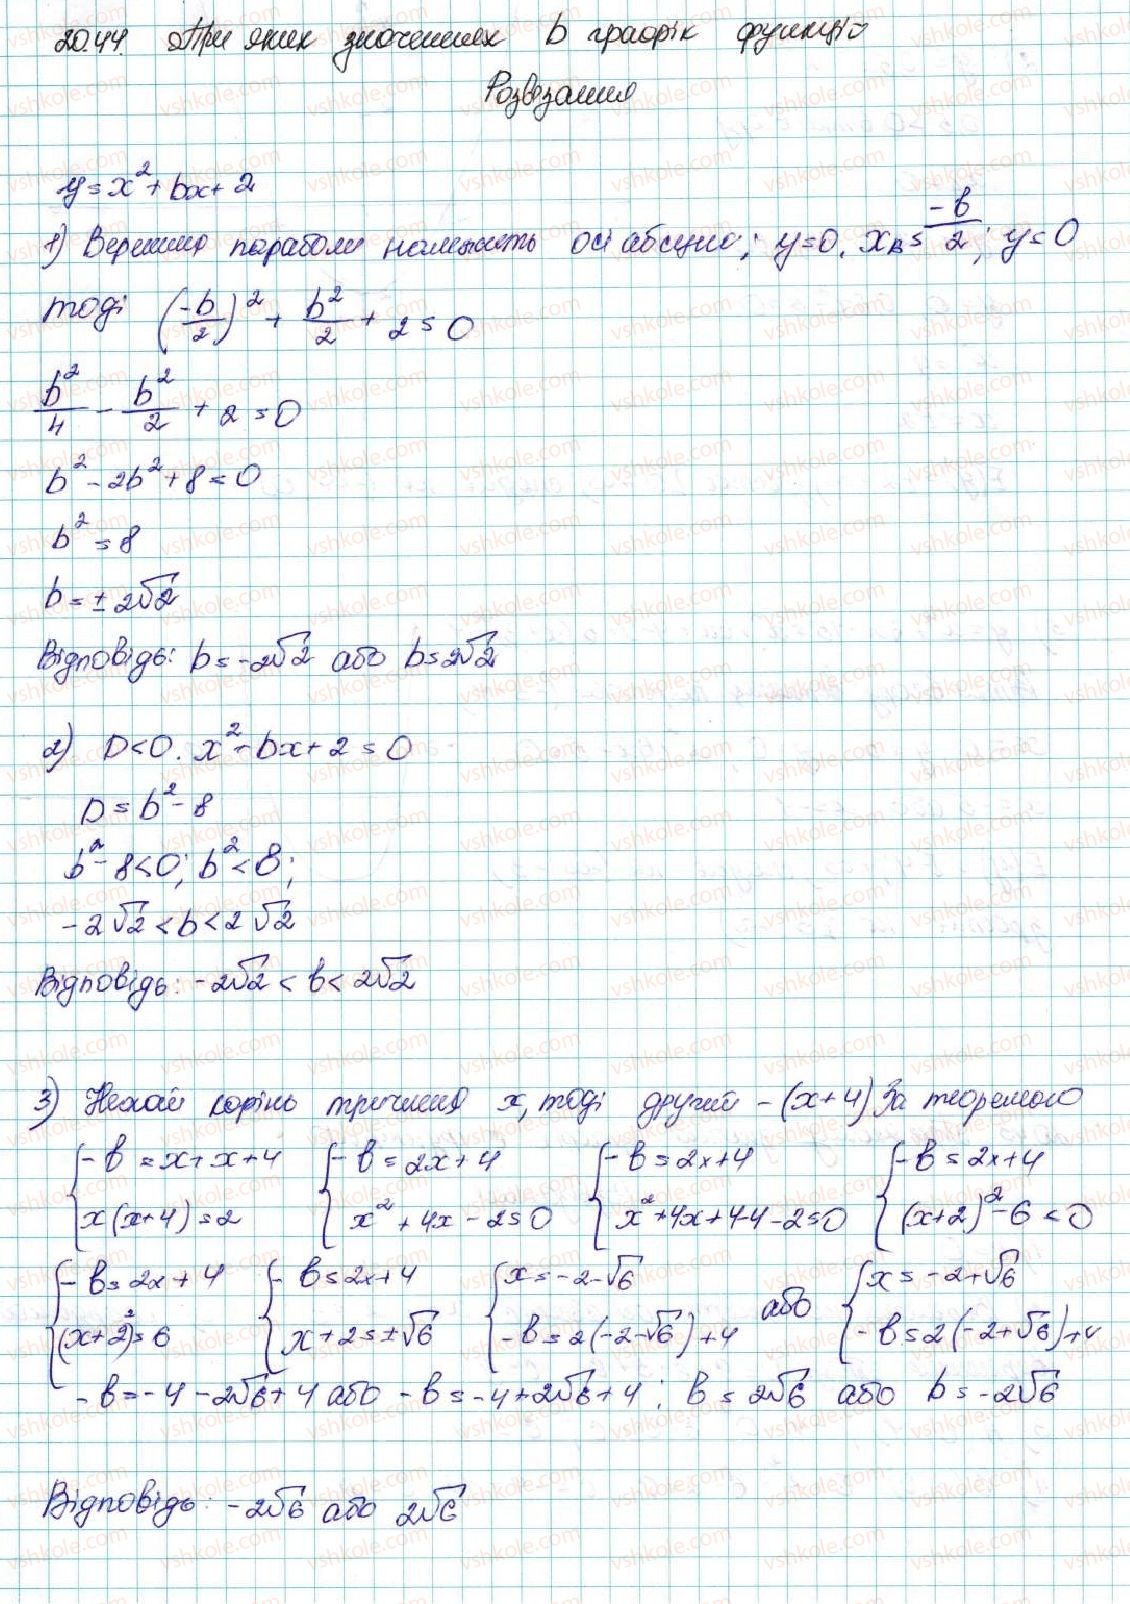 20.44. При яких значеннях b графік функції
Розвʼязання
y = x² + bx + 2
1) Вершина параболи належить осі абсцис; y=0. xв = -b/2; y=0
тоді (-b/2)² + b²/2 + 2 = 0
b²/4 - b²/2 + 2 = 0
b² - 2b² + 8 = 0
b² = 8
b = ± 2√2
Відповідь: b = -2√2 або b = 2√2
2) D<0. x² - bx + 2 = 0
D = b² - 8
b² - 8 < 0; b² < 8;
-2√2 < b < 2√2
Відповідь: -2√2 < b < 2√2
3) Нехай корінь тричлена x, тоді другий - (x+4) За теоремою
{-b = x + x + 4 {-b = 2x + 4 {-b = 2x + 4 {-b = 2x + 4
x(x+4) = 2 x² + 4x - 2 = 0 x² + 4x + 4 - 4 - 2 = 0 (x+2)² - 6 < 0
{-b = 2x + 4 {-b = 2x + 4 {x = -2 - √6 або {x = -2 + √6
(x+2)² = 6 x + 2 = ±√6 -b = 2(-2-√6) + 4 -b = 2(-2+√6) + 4
-b = -4 - 2√6 + 4 або -b = -4 + 2√6 + 4; b = 2√6 або b = -2√6
Відповідь: -2√6 або 2√6
vshkole.com